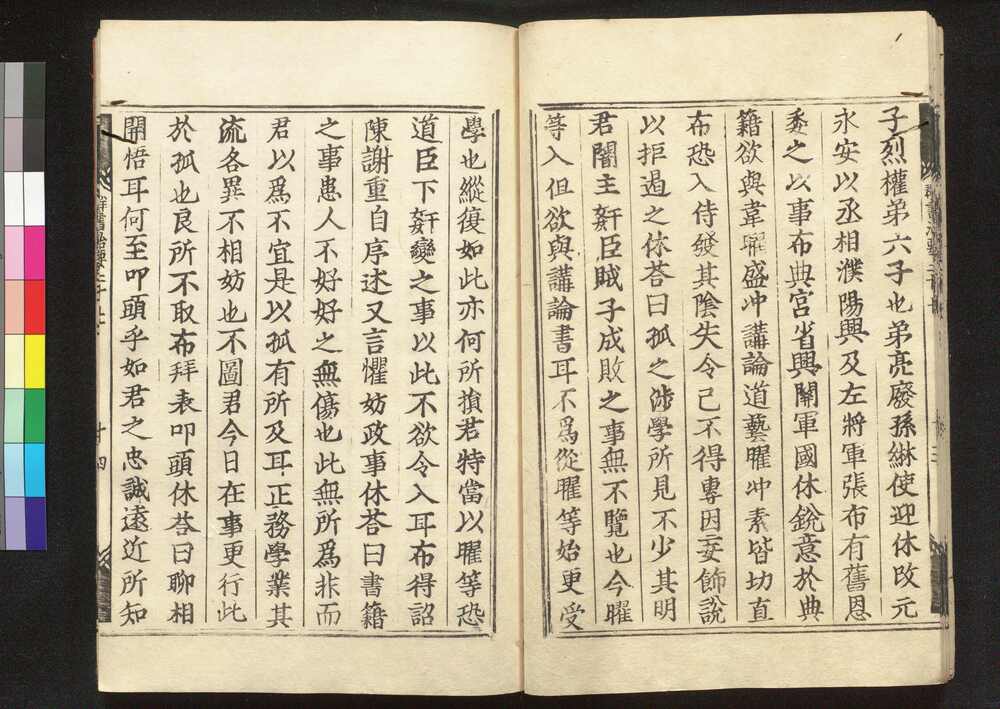 子烈權弟六子也弟亮廢孫綝使迎休改元
永安以丞相濮陽興及左將軍張布有舊恩
委之以事布典宮省興關軍國休銳意於典
籍欲與韋曜盛冲講論道藝曜冲素皆切直
布恐入侍發其陰失令己不得專因妄飾說
以拒過之休荅曰孤之涉學所見不少其明
君闇主姧臣賊子成敗之事無不覽也今曜
等入但欲與講論書耳不爲從曜等始更受
學也縱復如此亦何所損君特當以曜等恐
道臣下姧變之事以此不欲令入耳布得詔
陳謝重自序述又言懼妨政事休荅曰書籍
之事患人不好好之無傷也此無所爲非而
君以爲不宜是以孤有所及耳正務學業其
流各異不相妨也不圖君今日在事更行此
於孤也良所不取布拜表叩頭休荅曰聊相
開悟耳何至叩頭乎如君之忠誠遠近所知
十四